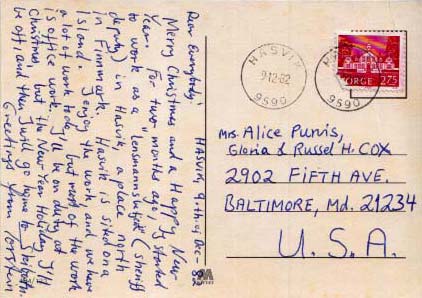 HASVIK, 9'th of Dec - 82
Dear Everybody!
Merry Christmas and a Happy New-
Year. For two months ago, I started
to work as a "lensmannsbetjent" (sheriff
deputy) in Hasvik, a place north
in Finnmark. Hasvik is sited on a
island. I enjoy the work and we have
a lot of work to do, but most of the work
is office work. I'll be on duty at
Christmas, but the New Year Holiday I'll
be off, and then I will go home to
Greetings from Torstein
HASVIK
9-12-82
9590
9590
NORGE 275
Mrs. Alice Purvis,
Gloria & Russel H. COX
2902 FIFTH AVE.
BALTIMORE, Md. 21234
U.S.A.